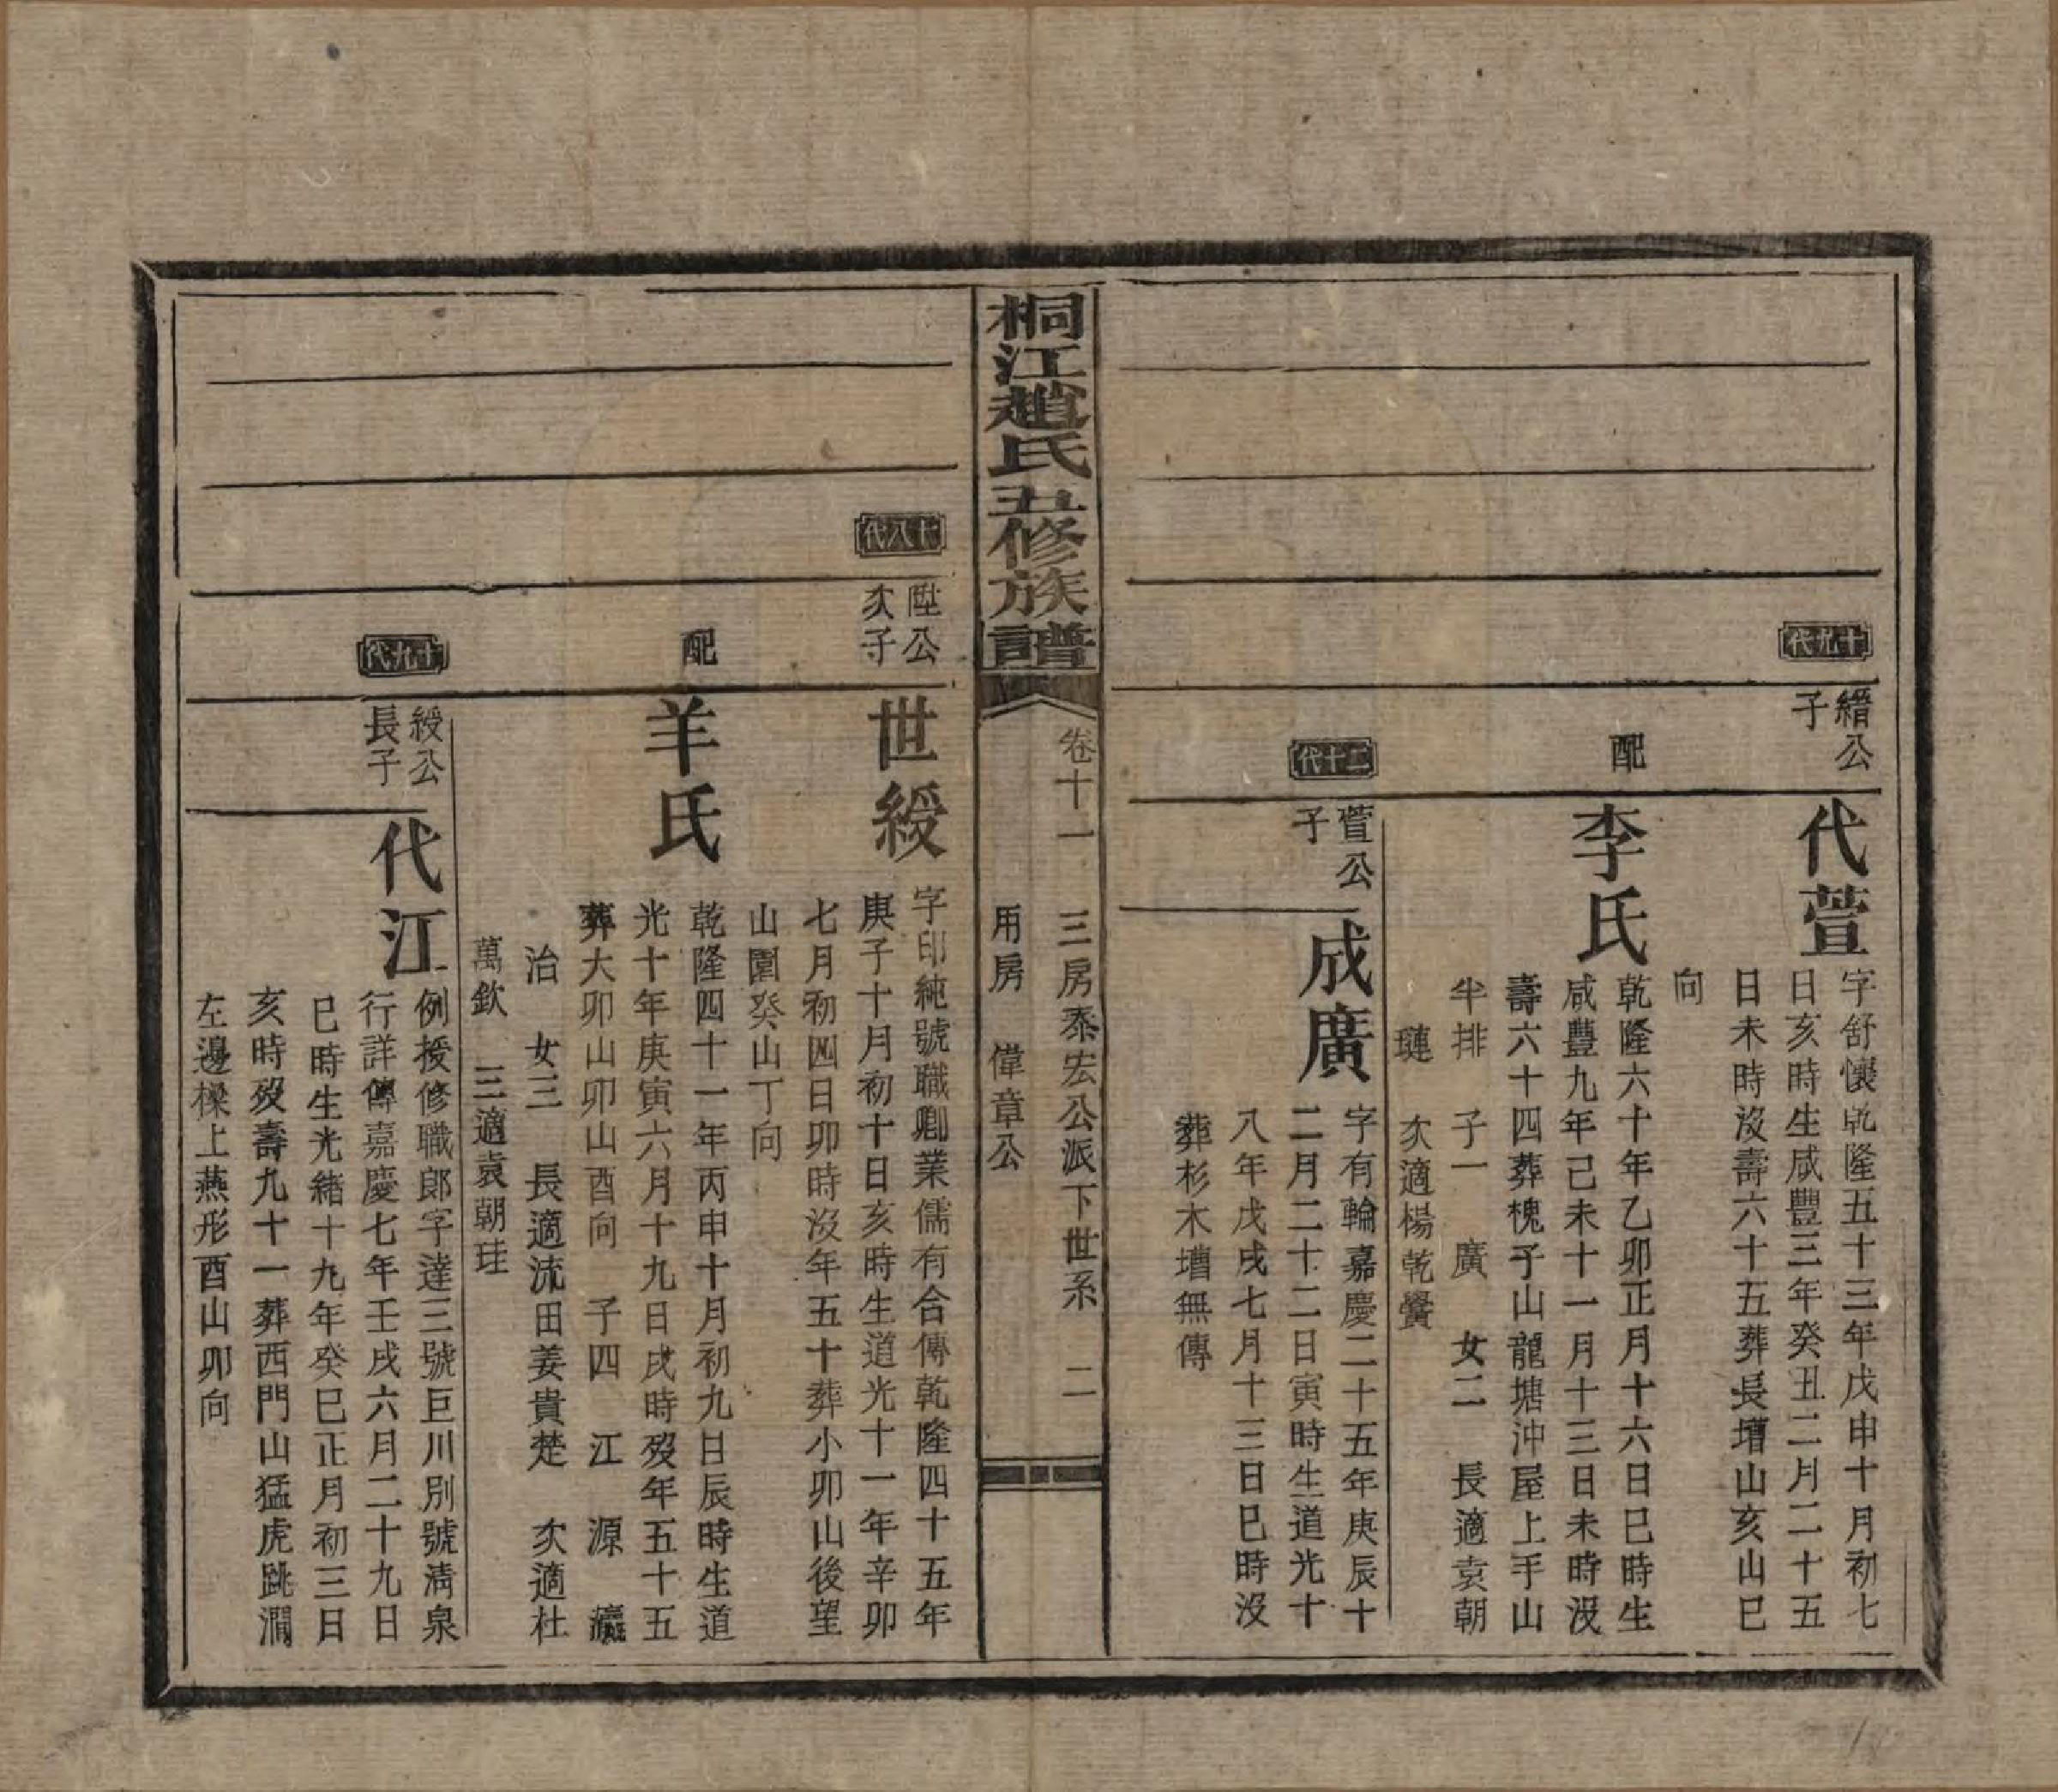 十九代
縉公
子
代萱
字舒懷乾隆五十三年戊申十月初七
日亥時生咸豐三年癸丑二月二十五
日未時沒壽六十五葬長壋山亥山巳
向
配
李氏
乾隆六十年乙卯正月十六日巳時生
咸豐九年己未十一月十三日未時沒
壽六十四葬槐子山龍塘沖屋上手山
半排 子一 廣 女二 長適袁朝
璉 次適楊乾鸞
二十代
萱公
子
成廣
字有輪嘉慶二十五年庚辰十
二月二十二日寅時生道光十
八年戊戌七月十三日巳時沒
葬杉木壋無傳
桐江趙氏五修族譜
卷十一 三房泰宏公派下世系 二
用房 偉章公
十八代
陞公
次子
世綬
字印純號職卿業儒有合傳乾隆四十五年
庚子十月初十日亥時生道光十一年辛卯
七月初四日卯時沒年五十葬小卯山後望
山園癸山丁向
配
羊氏
乾隆四十一年丙申十月初九日辰時生道
光十年庚寅六月十九日戌時歿年五十五
葬大卯山卯山酉向 子四 江 源 瀛
治 女三 長適流田姜貴楚 次適杜
萬欽 三適袁朝珪
十九代
綬公
長子
代江
例授修職郎字達三號巨川別號清泉
行詳傳嘉慶七年壬戌六月二十九日
巳時生光緒十九年癸巳正月初三日
亥時歿壽九十一葬西門山猛虎跳澗
左邊樑上燕形酉山卯向